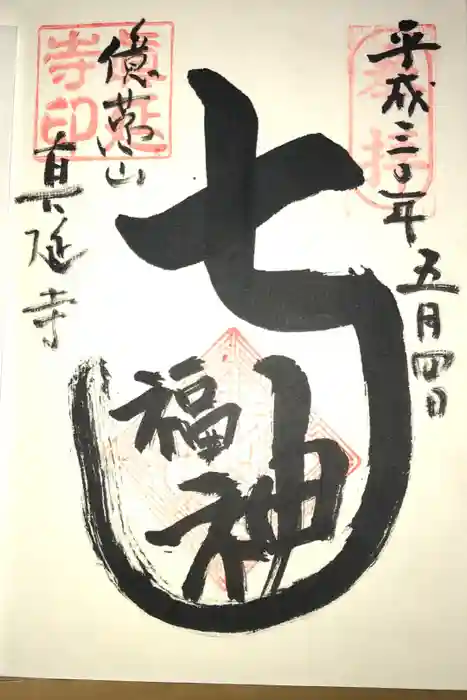 平成三〇年
五月四日
七福神
億劫山
真延寺
寺印